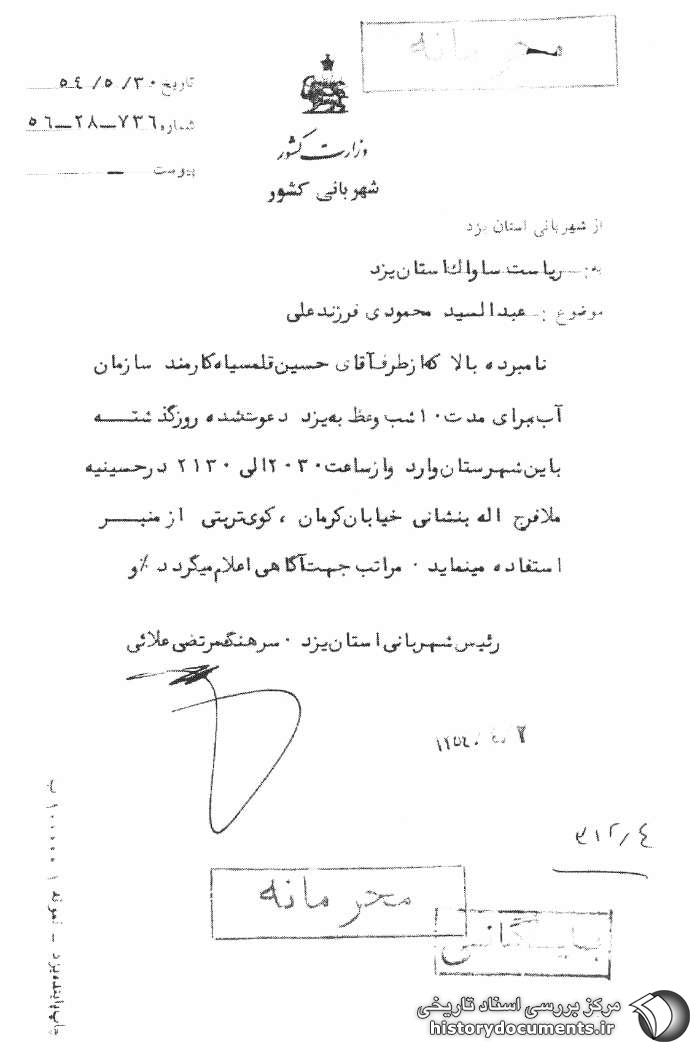 محرمانه
تاریخ ۳۰/ ۵/ ۵٤
شماره ۷۳٦-۲۸-۵٦
پیوست -
وزارت کشور
شهربانی کشور
از شهربانی استان یزد
به: ریاست ساواک استان یزد
موضوع: عبدالسید محمودی فرزند علی
نامبرده بالا که از طرف آقای حسین قلمسیاه کارمند سازمان
آب برای مدت ۱۰ شب وعظ به یزد دعوت شده روز گذشته
باین شهرستان وارد و از ساعت ۲۰۳۰ الی ۲۱۳۰ در حسینیه
ملا فرج اله بنشانی خیابان کرمان ، کوی تربتی از منبر
استفاده مینماید ۰ مراتب جهت آگاهی اعلام میگردد ٪و
رئیس شهربانی استان یزد ۰ سرهنگ مرتضی علائی
۳۱۲/٤
محرمانه
بایگانی
مرکز بررسی اسناد تاریخی
historydocuments.ir